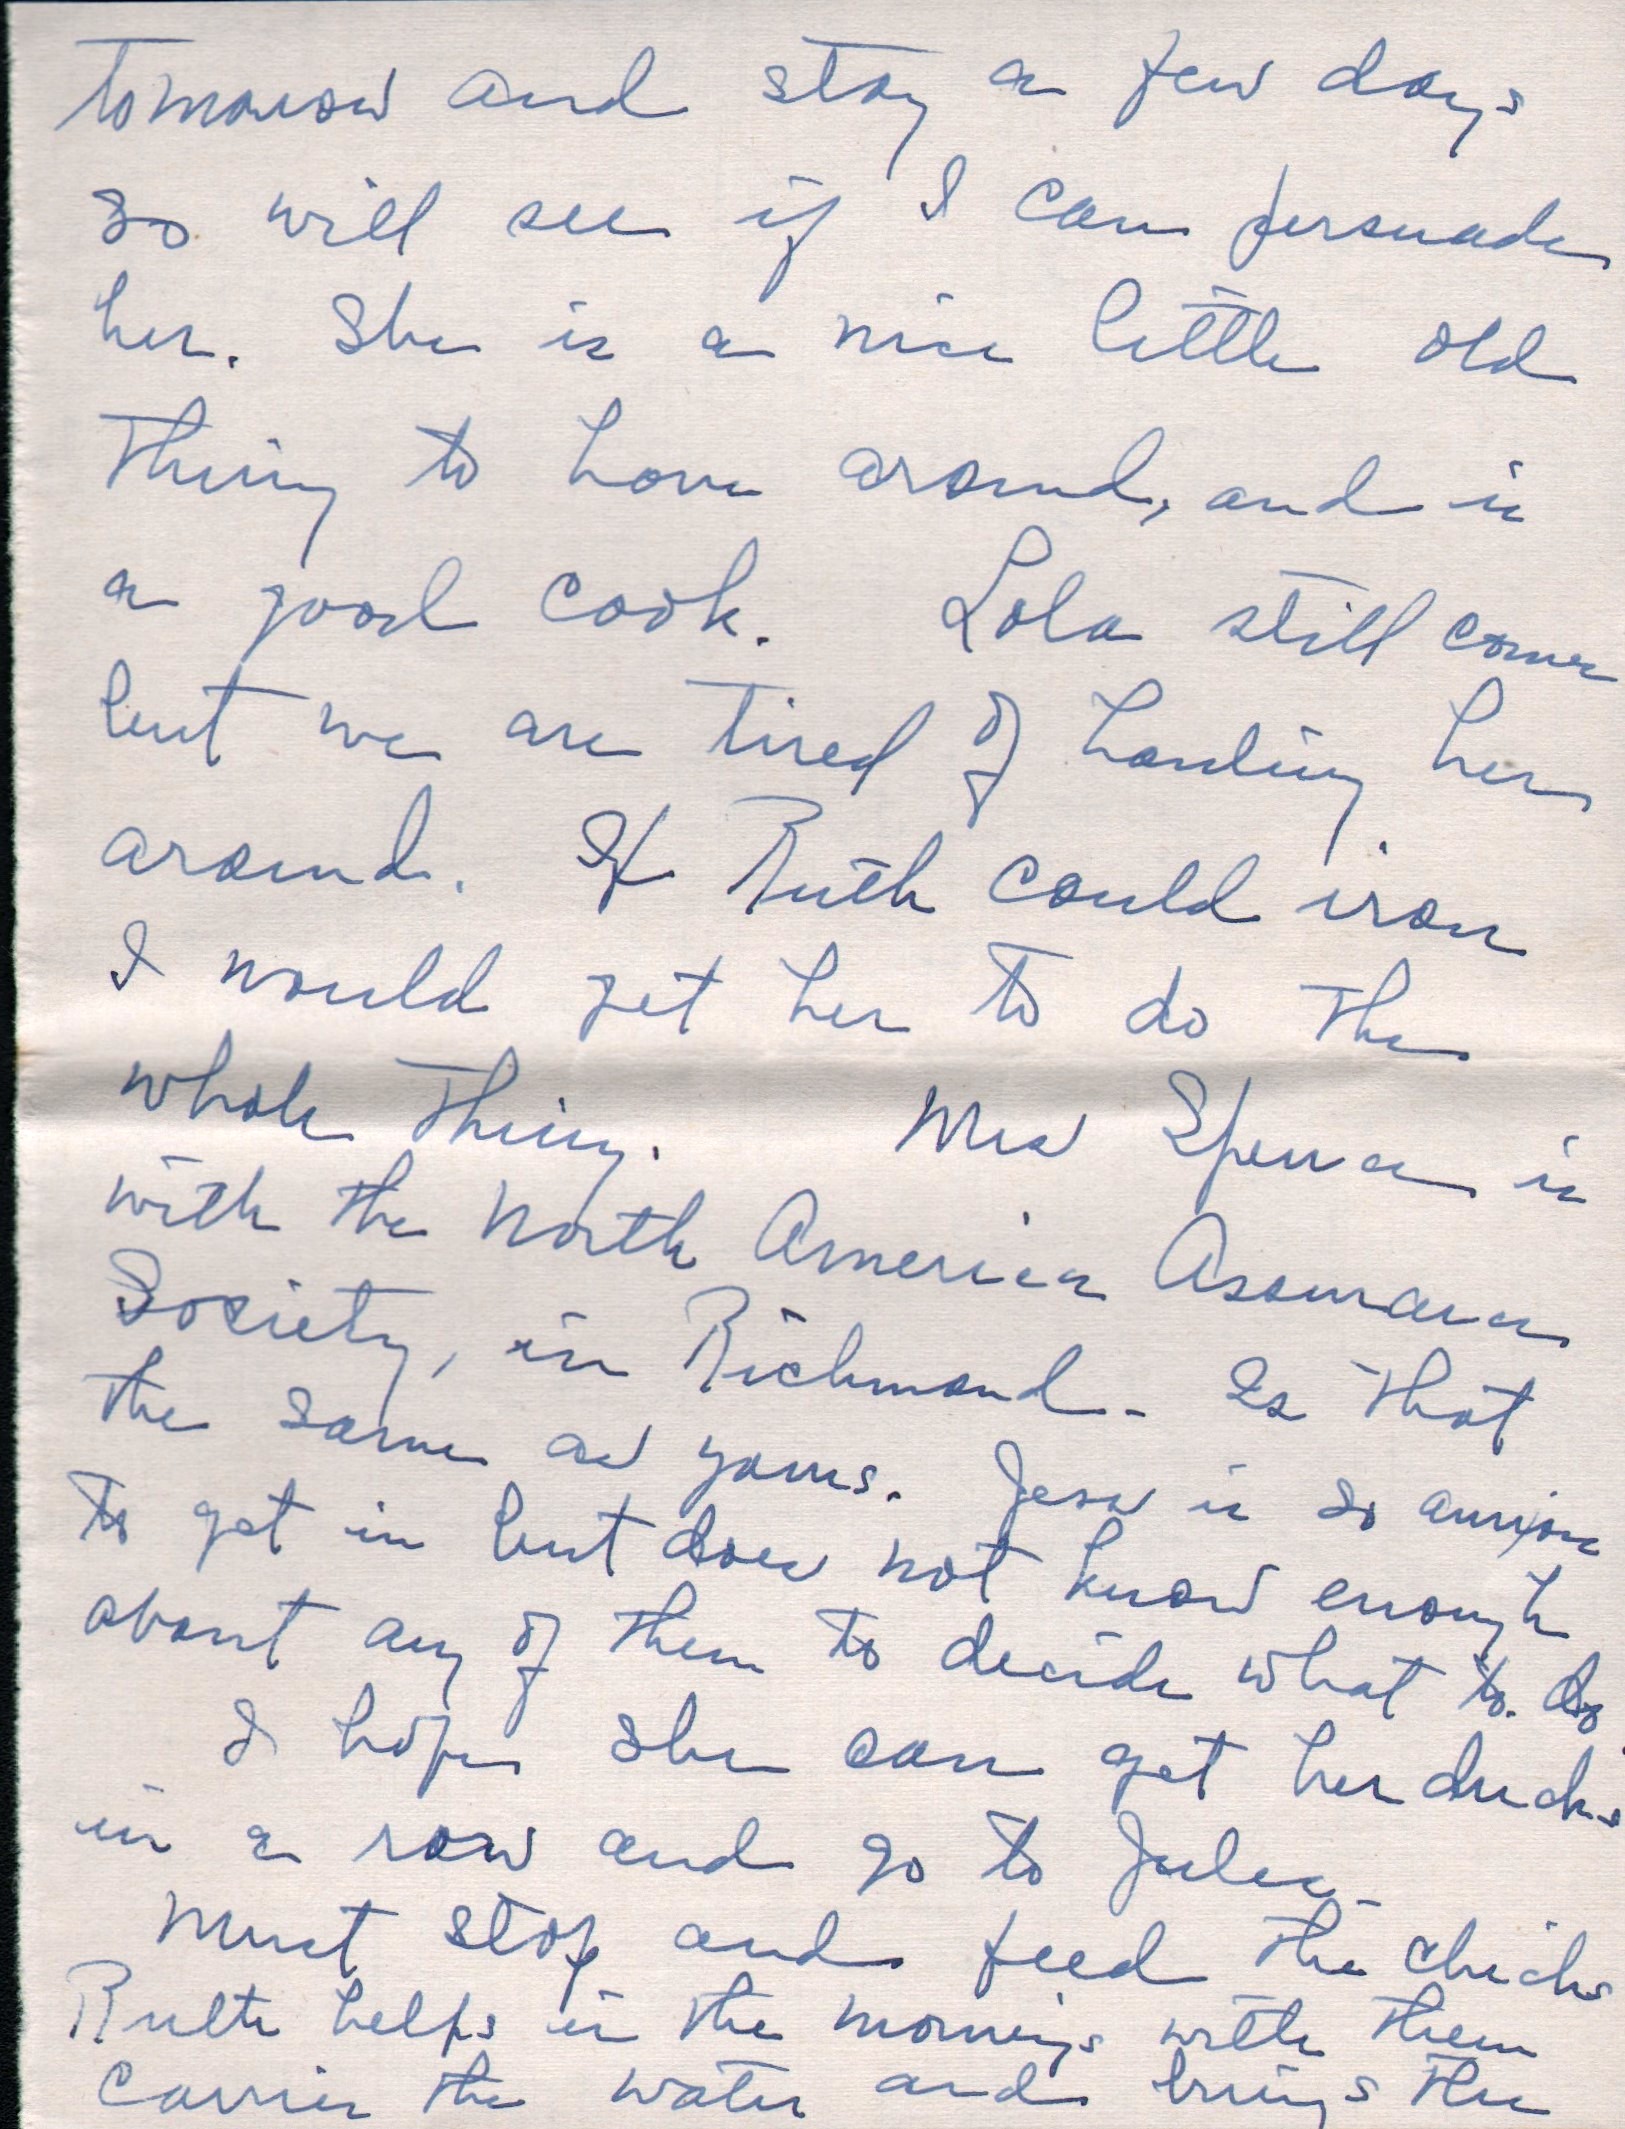 tomorrow and stay a few days
so will see if I can persuade
her. She is a nice little old
thing to have around, and is
a good cook. Lola still comes
but we are tired of hauling her
around. If Ruth could iron
I would get her to do the
whole thing. Mrs Spence is
with the North America Assurance
Society, in Richmond - Is that
the same as yours. Jess is so anxious
to get in but does not know enough
about any of them to decide what to do
I hope she can get her ducks
in a row and go to Jules.
Must stop and feed the chicks
Ruth helps in the mornings with them
carries the water and brings the